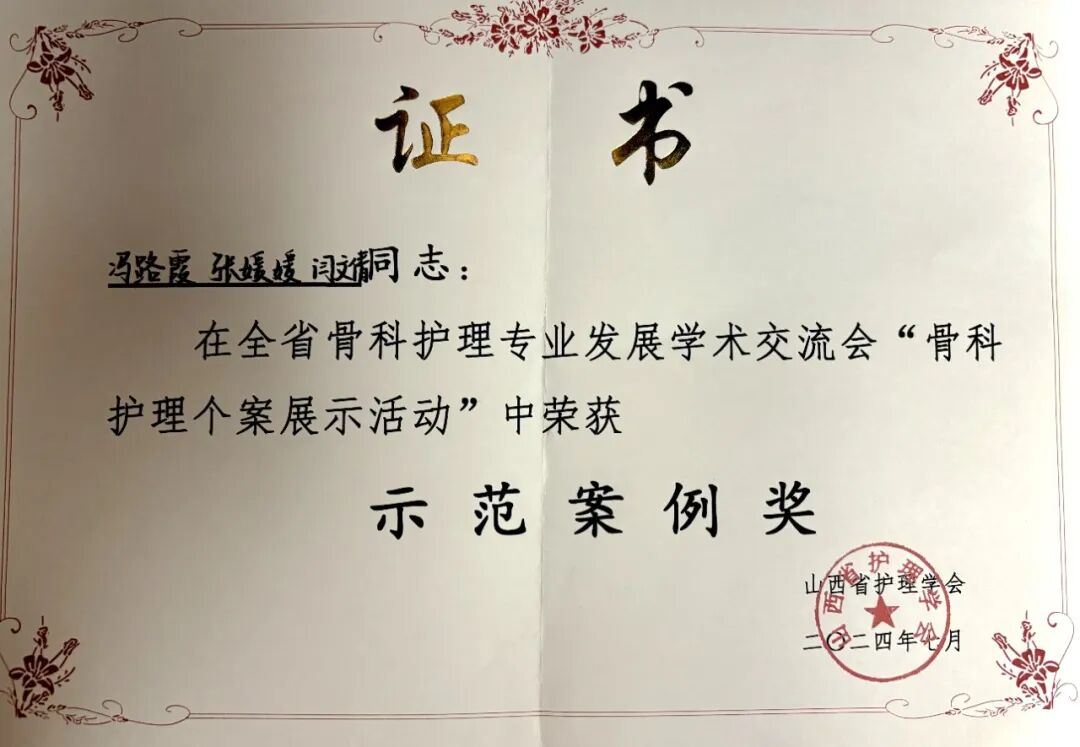 证书
冯路霞 张媛媛 闫文倩同志：
在全省骨科护理专业发展学术交流会“骨科
护理个案展示活动”中荣获
示范案例奖
山西省护理学会
二〇二四年七月
山西省护理学会